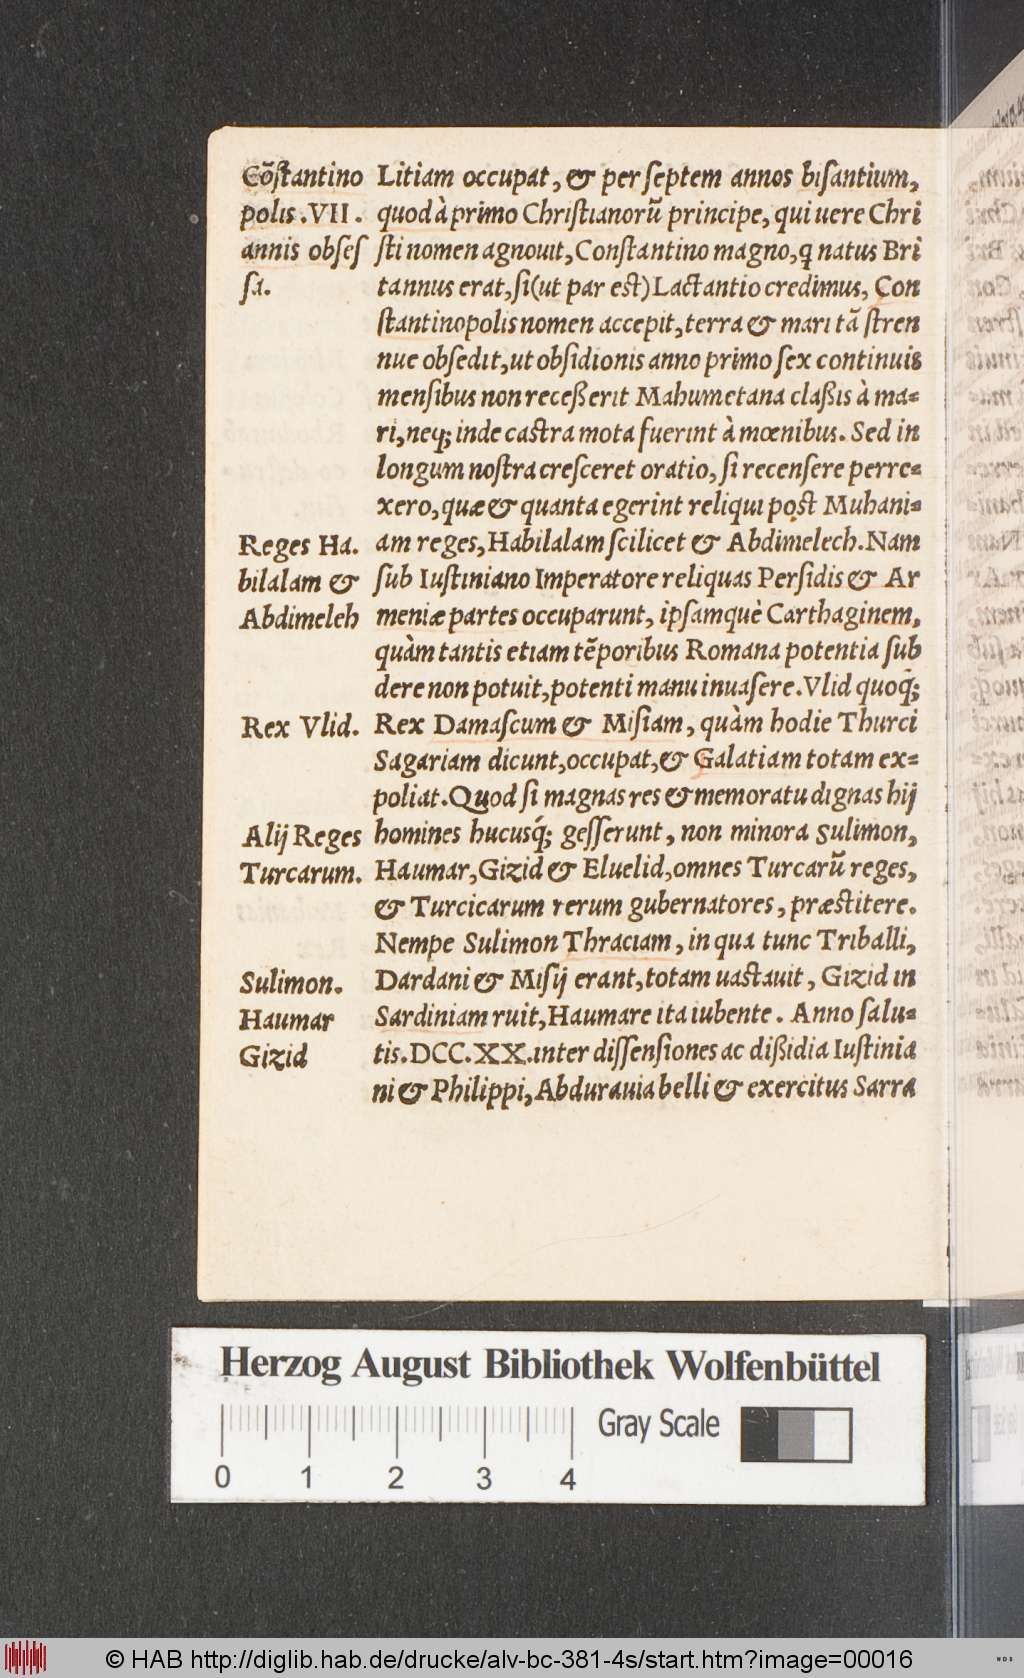 Cõſtantino
polis.VII.
annis obſeſ
ſa.
Litiam occupat, & per ſeptem annos biſantium,
quod à primo Chriſtianorũ principe, qui uere Chri
ſti nomen agnouit, Conſtantino magno, q̃ natus Bri
tannus erat, ſi (ut par eſt) Lactantio credimus, Con
ſtantinopolis nomen accepit, terra & mari tã ſtren
nue obſedit, ut obſidionis anno primo ſex continuis
menſibus non receßerit Mahumetana claßis à ma=
ri, neq; inde caſtra mota fuerint à mœnibus. Sed in
longum noſtra creſceret oratio, ſi recenſere perre=
xero, quæ & quanta egerint reliqui poſt Muhani=
Reges Ha.
bilalam &
Abdimeleh
am reges, Habilalam ſcilicet & Abdimelech. Nam
ſub Iuſtiniano Imperatore reliquas Perſidis & Ar
meniæ partes occuparunt, ipſamquè Carthaginem,
quàm tantis etiam tẽporibus Romana potentia ſub
dere non potuit, potenti manu inuaſere. Vlid quoq́;
Rex Vlid.
Rex Damaſcum & Miſiam, quàm hodie Thurci
Sagariam dicunt, occupat, & Galatiam totam ex=
poliat. Quod ſi magnas res & memoratu dignas hij
Alij Reges
Turcarum.
homines hucusq́; geſſerunt, non minora Sulimon,
Haumar, Gizid & Eluelid, omnes Turcarũ reges,
& Turcicarum rerum gubernatores, præſtitere.
Nempe Sulimon Thraciam, in qua tunc Triballi,
Sulimon.
Haumar
Gizid
Dardani & Miſij erant, totam uaſtauit, Gizid in
Sardiniam ruit, Haumare ita iubente. Anno ſalu=
tis. DCC. XX. inter diſſenſiones ac dißidia Iuſtinia
ni & Philippi, Abdurauia belli & exercitus Sarra
Herzog August Bibliothek Wolfenbüttel
Gray Scale
0 1 2 3 4
© HAB http://diglib.hab.de/drucke/alv-bc-381-4s/start.htm?image=00016